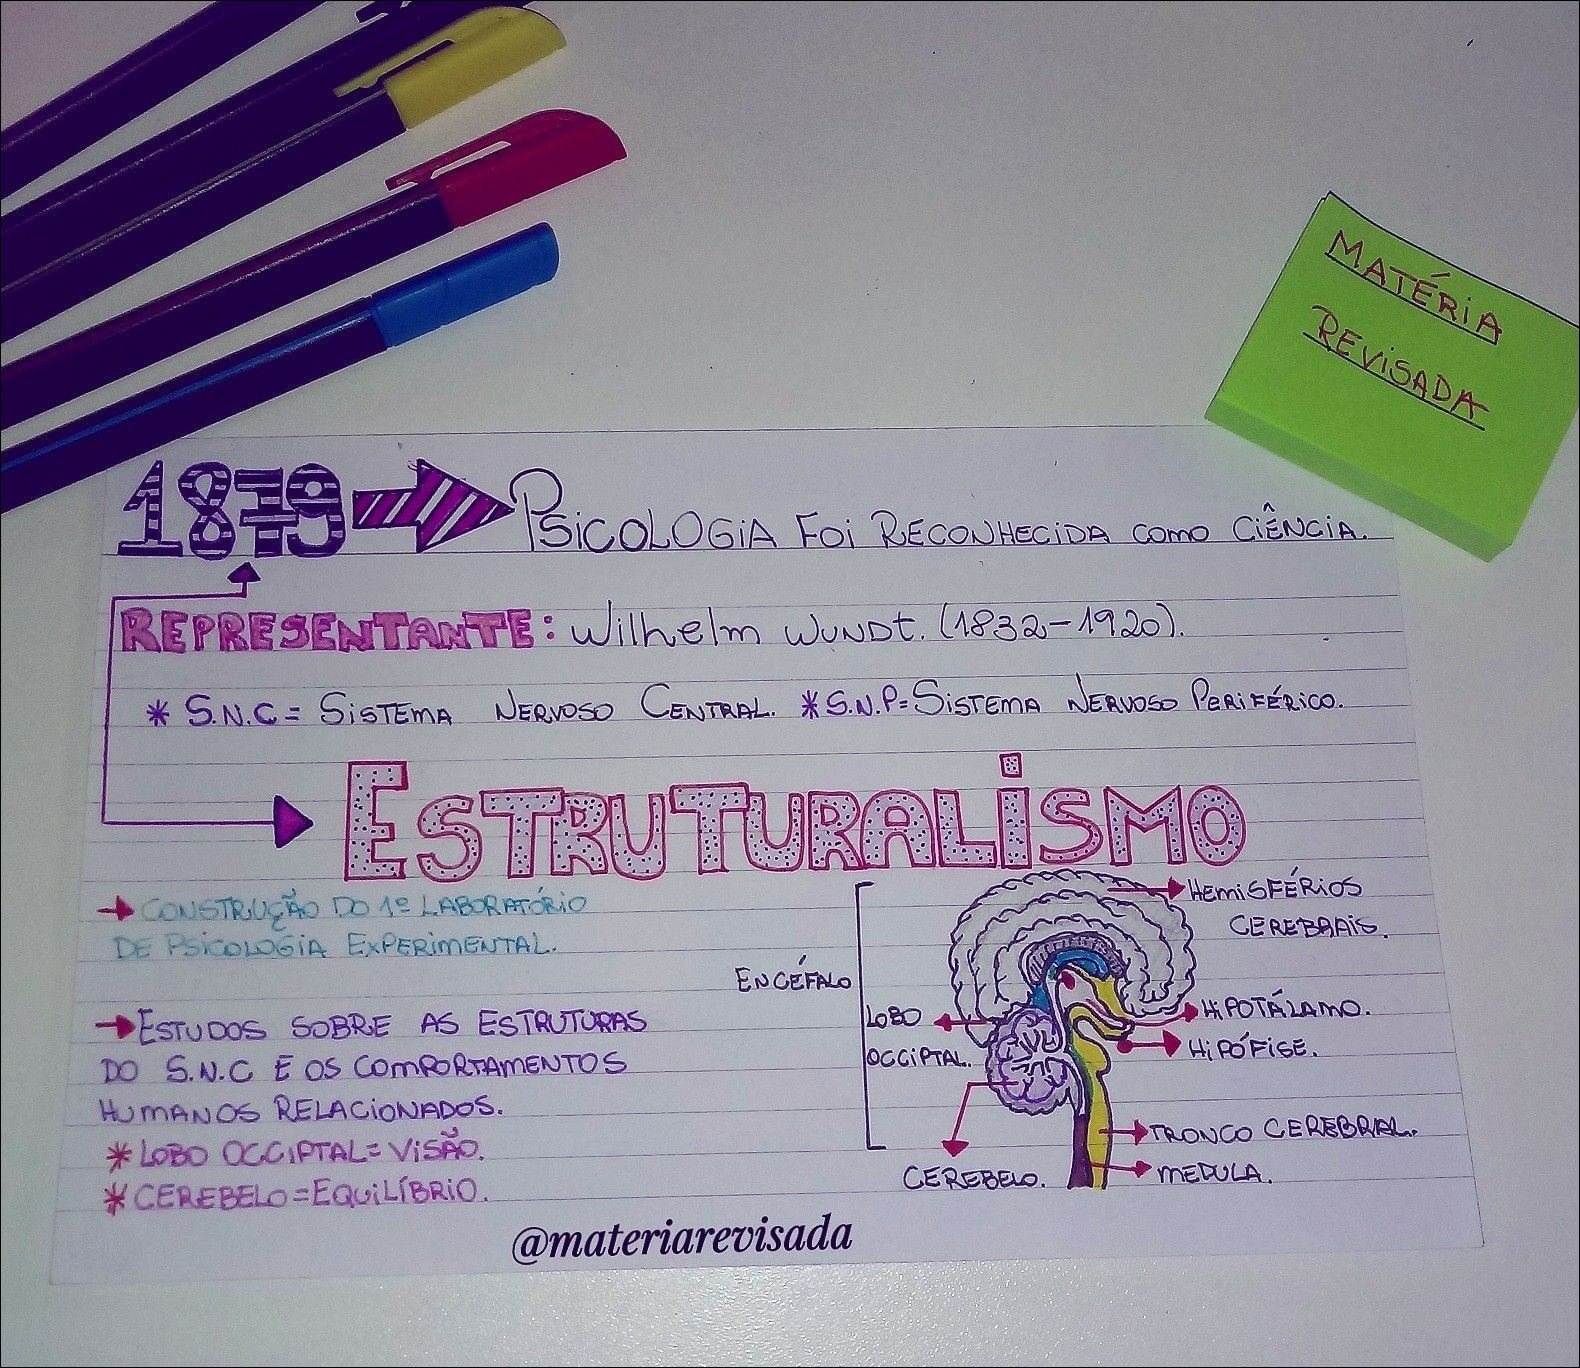 MATÉRIA
REVISADA
1879 PSICOLOGIA FOI RECONHECIDA COMO CIÊNCIA.
REPRESENTANTE: Wilhelm WUNDT. (1832-1920).
* S.N.C = SISTEMA NERVOSO CENTRAL. * S.N.P = SISTEMA NERVOSO PERIFÉRICO.
ESTRUTURALISMO
→ CONSTRUÇÃO DO 1º LABORATÓRIO
DE PSICOLOGIA EXPERIMENTAL.
→ ESTUDOS SOBRE AS ESTRUTURAS
DO S.N.C E OS COMPORTAMENTOS
HUMANOS RELACIONADOS.
* LOBO OCCIPTAL = VISÃO.
* CEREBELO = EQUILÍBRIO.
ENCÉFALO
HEMISFÉRIOS
CEREBRAIS.
LOBO
OCCIPTAL.
HIPOTÁLAMO.
HIPÓFISE.
TRONCO CEREBRAL.
CEREBELO.
MEDULA.
@materiarevisada